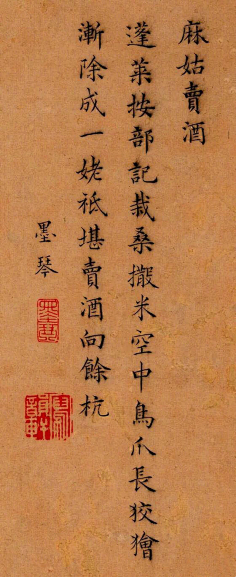 麻姑賣酒
蓬萊按部記栽桑撒米空中鳥爪長狡獪
漸除成一姥祗堪賣酒向餘杭
墨琴